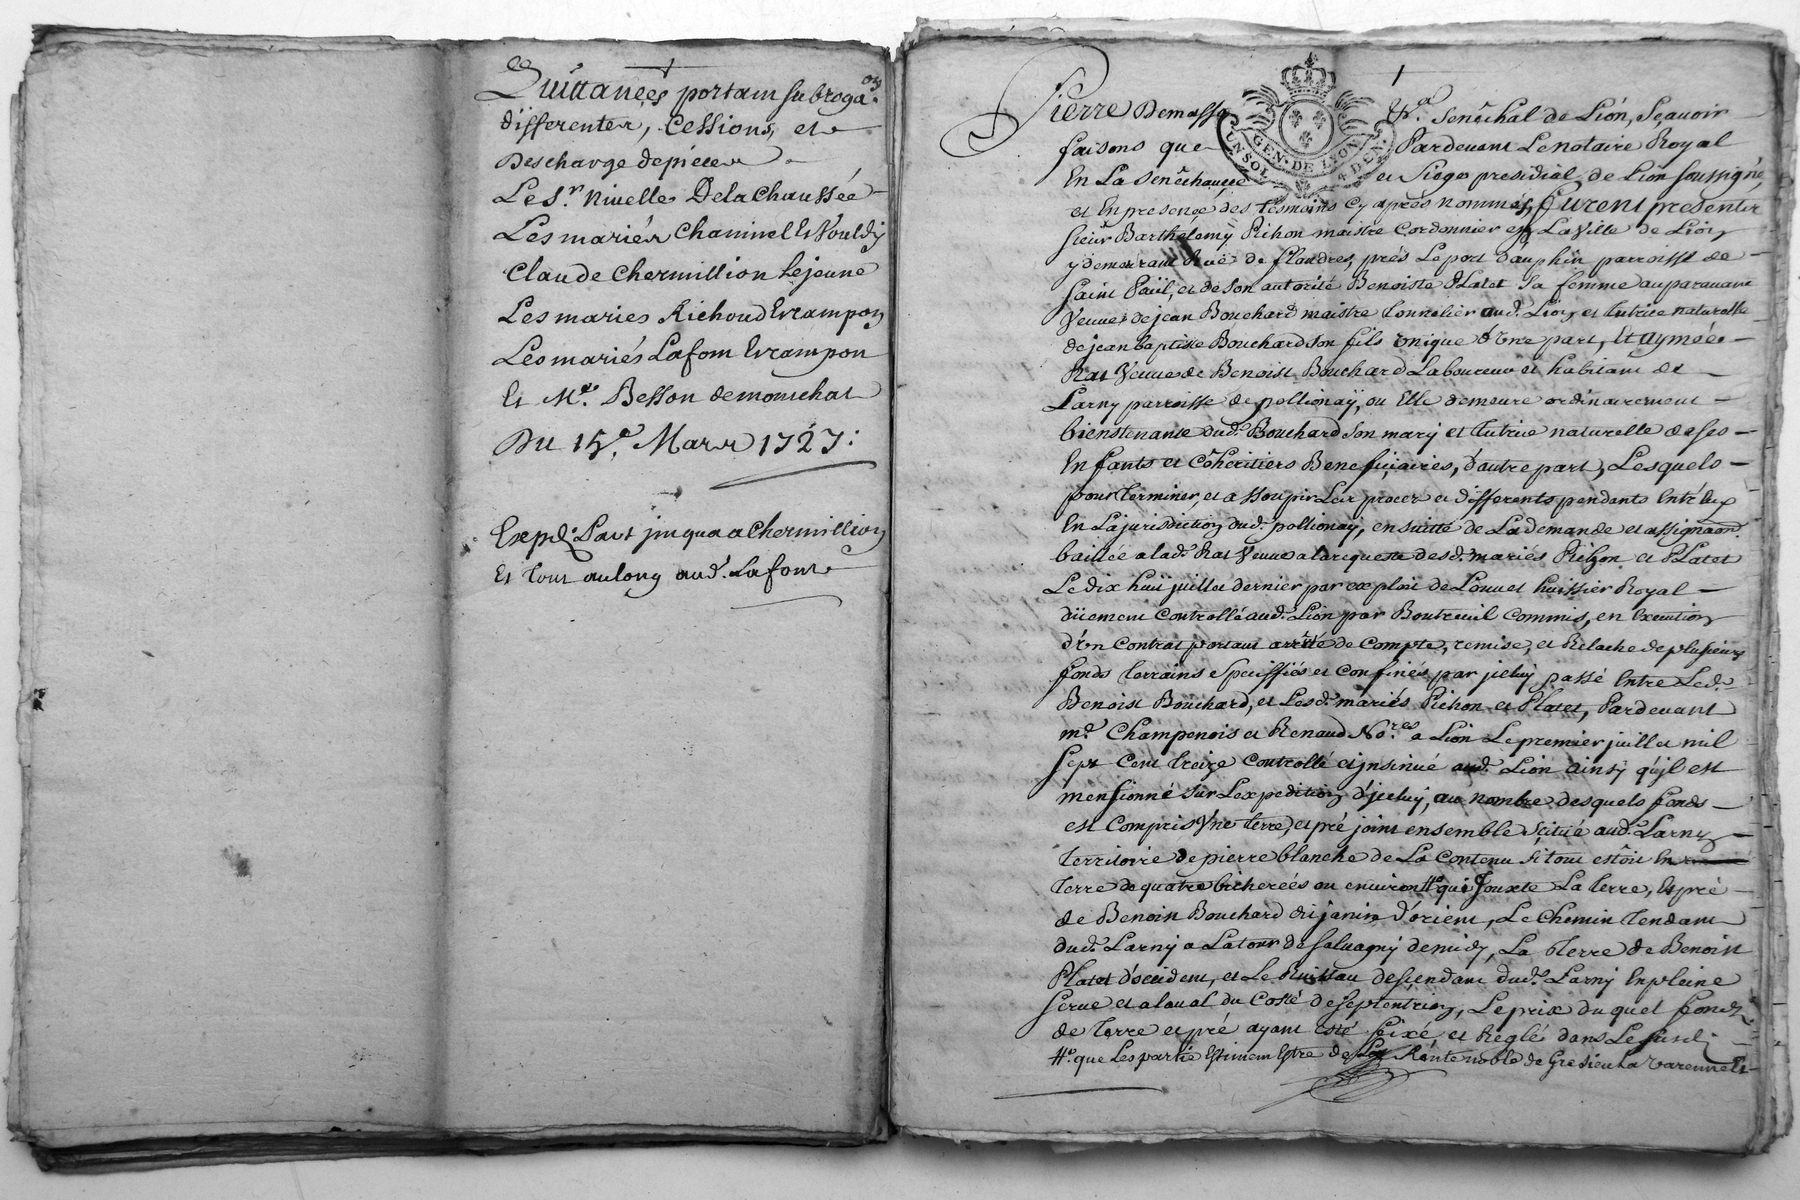 Quittances portant subroga.on
differentes, Cessions, et
Descharge de pieces
Le S.r nivelle De la Chaussée
Les mariés Chaninel Et Vouldy
Claude Chermillion Lejeune
Les mariés Richoud Et rampon
Les mariés Lafont Et rampon
Et M.e Besson de monchat
Du 15.e Mars 1727.
Exped.
jusqua a Chermillion
Et Tout au long aud. Lafont
1
Pierre Demasso Sénéchal de Lion, Sçavoir
faisons que Pardevant Le notaire Royal
GEN. DE LYON
UN SOL 4 DEN.
En La Sénéchaussée et Siege presidial de Lion soussigné,
et En presence des Tesmoins Cy après nommés, furent presents
sieur Barthelemy Pichon maistre Cordonnier en La Ville de Lion
y demeurant Ruë de flandres, prés Le port Dauphin parroisse de
saint Paul, et de Son autorité Benoiste Platet Sa femme auparavant
Veuve de jean Bouchard maistre Tonnelier aud. Lion et tutrice naturelle
de jean baptiste Bouchard son fils Vnique d'Vne part, Et aymée
Rat Veuve de Benoist Bouchard Laboureur et habitant de
Larny parroisse de pollionaÿ, ou Elle demeure ordinairement
bienstenante dud. Bouchard Son mary et tutrice naturelle de ses
Enfants et Cohéritiers Beneficiaires, d'autre part, Lesquels
pour Terminer, et assoupir Les procez et differents pendants Entr'eux
En La jurisdiction dud. pollionaÿ, en suitte de La demande et assignaon.
baillée a lad. Rat Veuve a la requeste desd. mariés Pichon et Platet
Le dix huit juillet dernier par exploit de Louvet huissier Royal
düement Controllé aud. Lion par Boutreuil Commis, en Execution
d'Vn Contrat portant arrêté de Compte, remise, et Relache de plusieurs
fonds Terrains Speciffiés et Confinés par jceluy passé Entre Led.
Benoist Bouchard, et Lesd. mariés Pichon et Platet, Pardevant
m.e Champenois et Renaud No.res a Lion Le premier juillet mil
Sept Cent Treize Controllé et jnsinué aud. Lion ainsy qu'jl est
mensionné Sur Lexpedition d'jceluy, au nombre desquels fonds
est Compris Vne Terre, et pré joint ensemble Scitué aud. Larny
Territoire de pierre blanche de La Contenu Si tout estoit En
Terre de quatre bicherées ou environ qui Jouxte La Terre, Et pré
de Benoist Bouchard dit janin d'orient, Le Chemin Tendant
dud. Larny a La tour de Salvagny de midy, La Terre de Benoist
Platet d'occident, et Le Ruisseau descendant dud. Larny
et du Costé de septentrion, Le prix du quel fonds
de Terre et pré ayant esté fixé, et Reglé dans Le susd.
que Les partie Estiment Estre de La Rente noble de Gresieu La Varenne